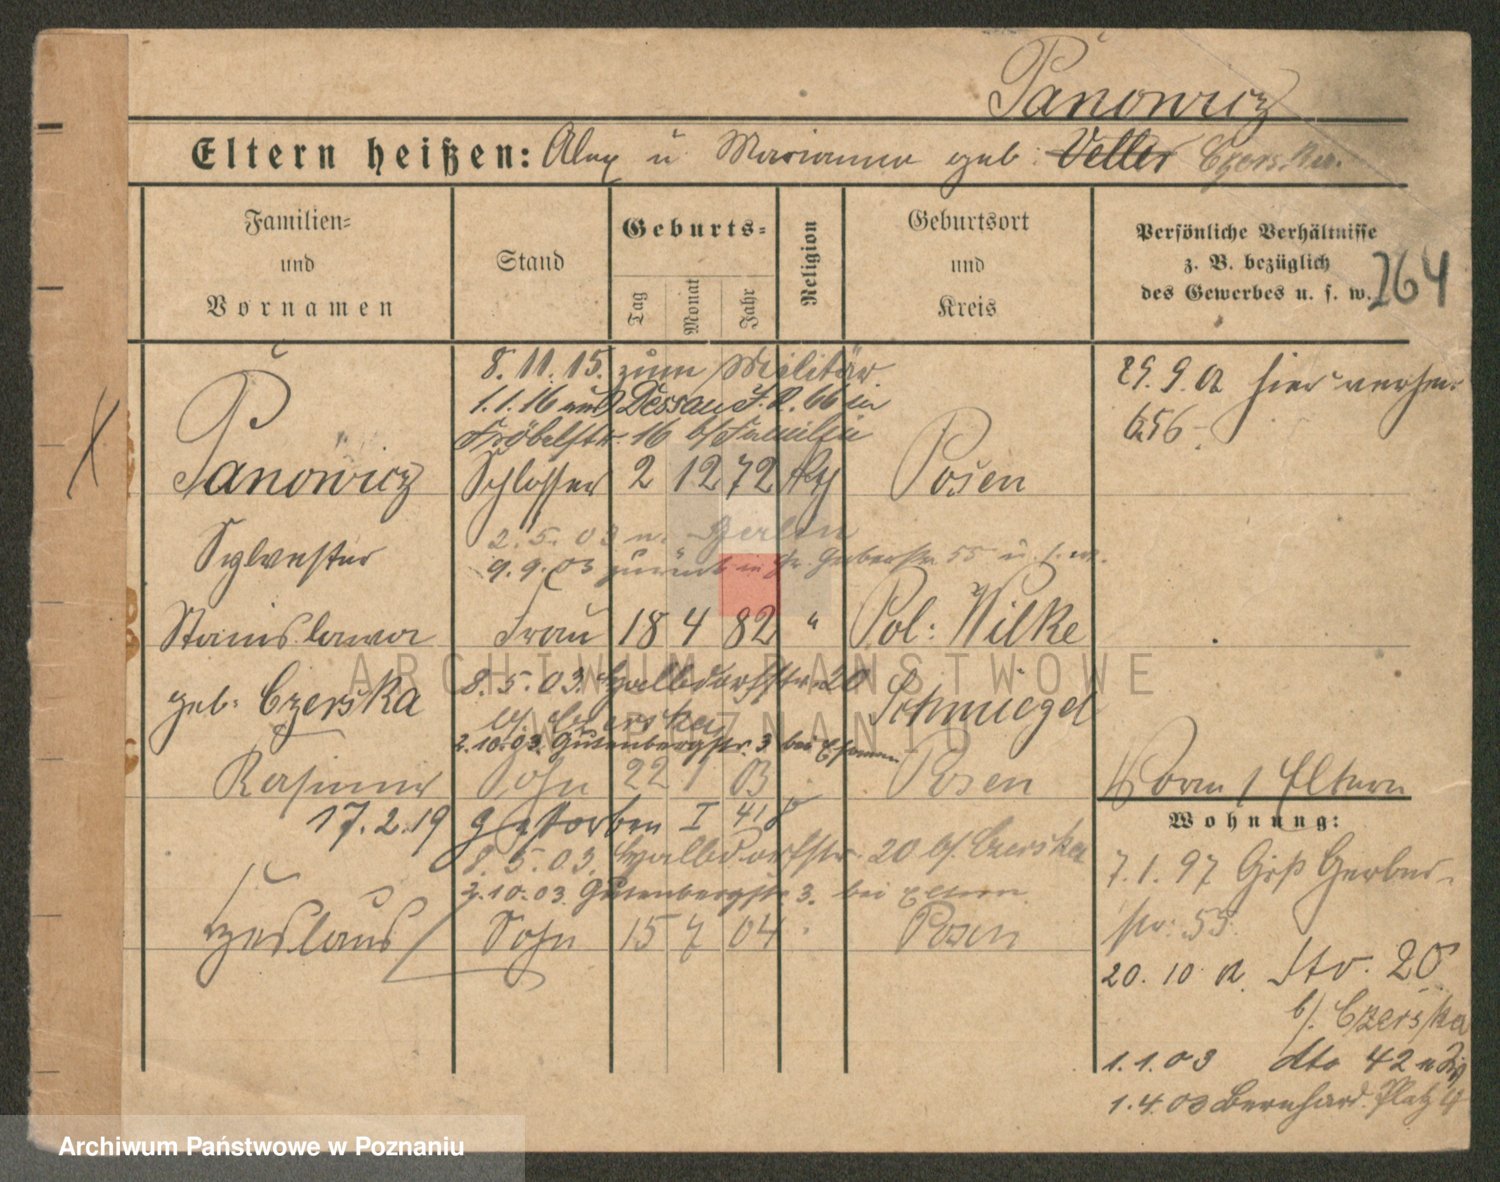 Panowicz
Eltern heißen: Alex u Marianna geb. Veller Czerska.
Familien- und Vornamen
Stand
Geburts-
Tag
Monat
Jahr
Religion
Geburtsort und Kreis
Persönliche Verhältnisse
z. B. bezüglich
des Gewerbes u. s. w.
264
8.11.15. zum Militär
1.1.16 aus Dessau J.R. 66 in
Fröbelstr. 16 b/Familie
29.9.02 hier
656
Panowicz Schlosser 2 12 72 Posen
Sylvester
2.5.03 n. Berlin
9.9.03 zurück in Gr. Gerberstr 55 u. s. w.
Stanislawa Frau 18 4 82 " Pol: Wilke
geb. Czerska
8.5.03. Halbdorfstr. 20
b/. Czerska
Schmiegel
2.10.03. Gutenbergstr. 3 bei
Kasimir Sohn 22 1 03 Posen
Eltern
17.2.19 gestorben I 418
Wohnung:
8.5.03. Halbdorfstr. 20 b/. Czerska
7.1.97 Grß Gerber-
str. 55.
2.10.03. Gutenbergstr 3. bei Eltern.
Czeslaus Sohn 15 7 04 Posen
20.10 02. Str. 20
b/. Czerska
1.1.03 dto 42
1.4.03 Bernhard. Platz
ARCHIWUM PAŃSTWOWE
W POZNANIU
Archiwum Państwowe w Poznaniu